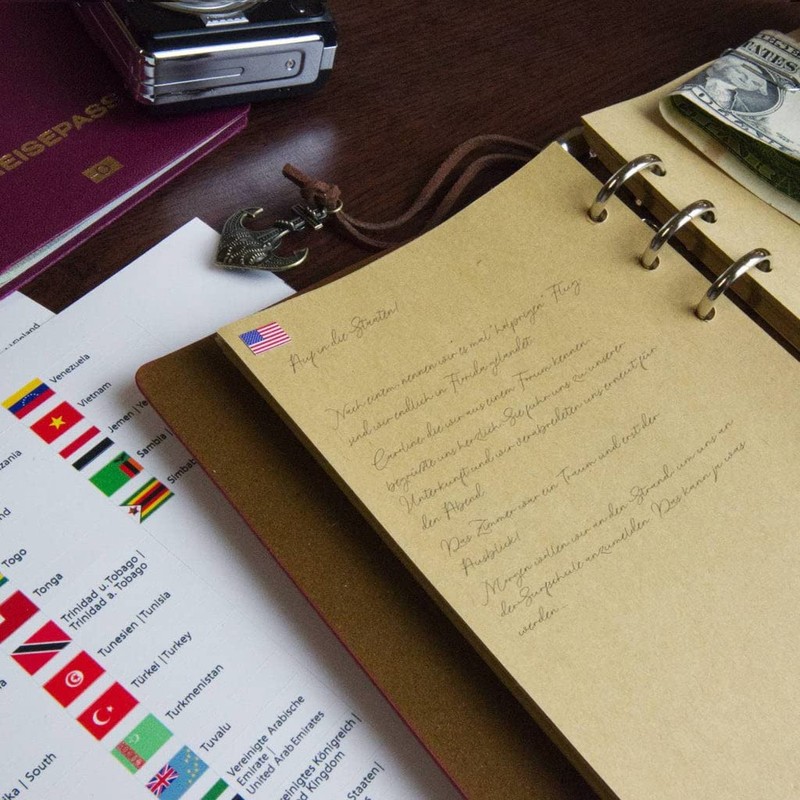 REISEPASS
TATES
Auf in die Staaten!
Nach einem, nennen wir es mal "holprigen" Flug
sind wir endlich in Florida gelandet.
Caroline die wir aus einem Forum kennen,
begrüßte uns herzlich. Sie fuhr uns zu unserer
Unterkunft und wir verabredeten uns erneut für
den Abend.
Das Zimmer war ein Traum und erst der
Ausblick!
Morgen wollen wir an den Strand um uns an
der Surfschule anzumelden. Das kann ja was
werden...
Venezuela
Vietnam
Jemen | Ye
Sambia
Simbab
Togo
Tonga
Trinidad u. Tobago |
Trinidad a. Tobago
Tunesien | Tunisia
Türkei | Turkey
Turkmenistan
Tuvalu
Vereinigte Arabische
Emirate |
United Arab Emirates
einigtes Königreich |
d Kingdom
Staaten |
ika | South